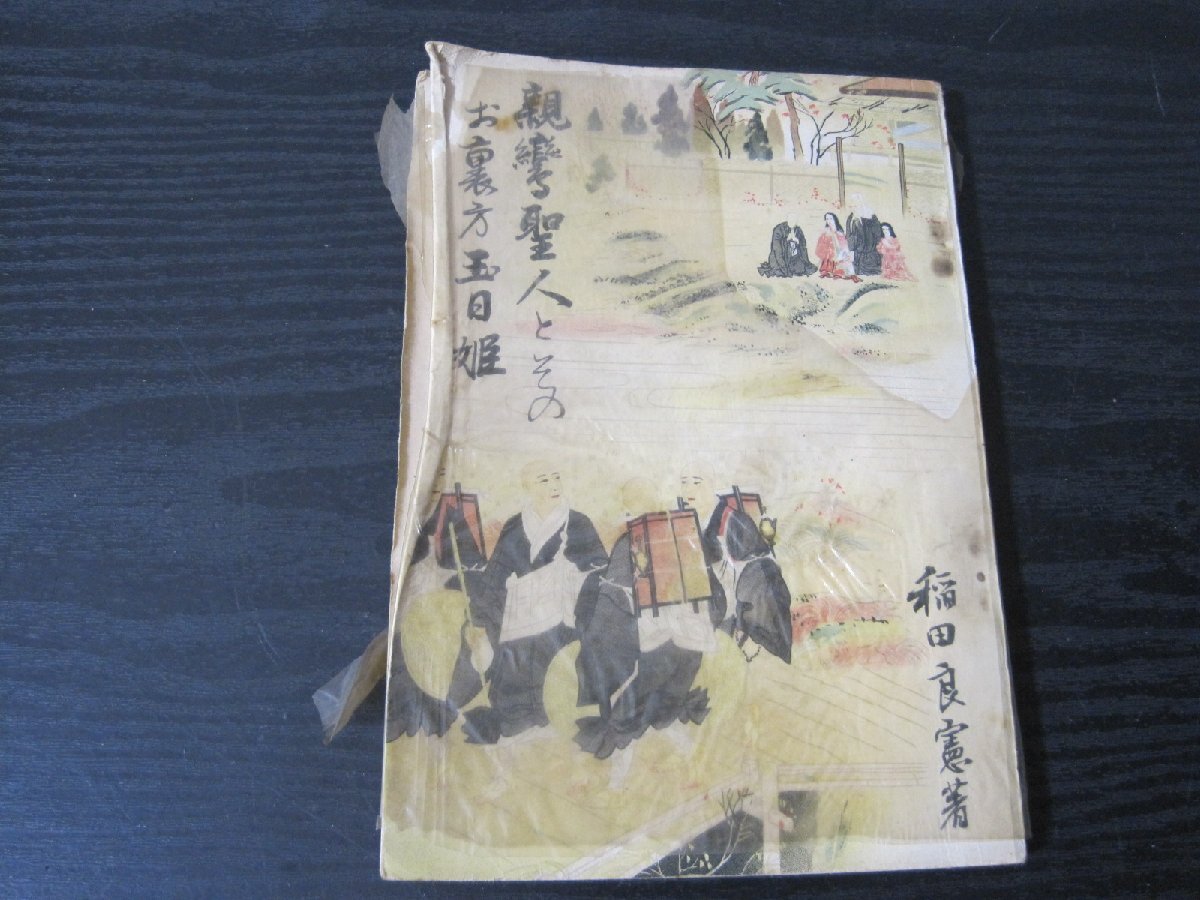 親鸞聖人とその
お裏方玉日姫
稲田良憲著